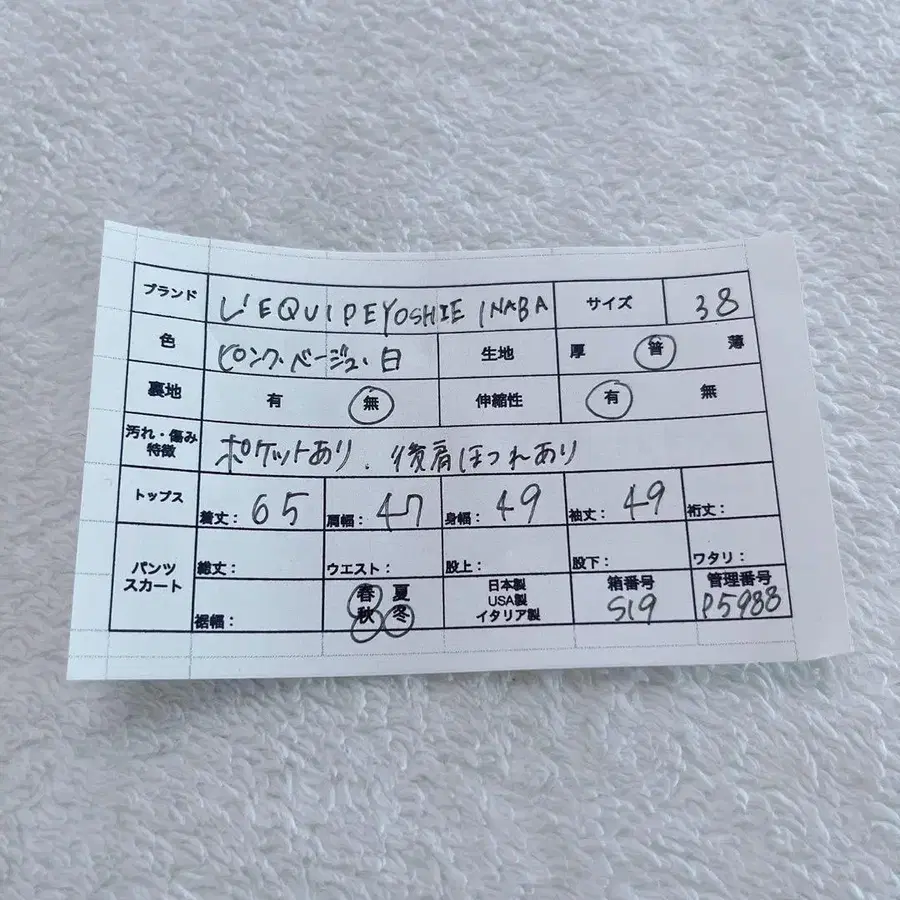 ブランド L'EQUIPEYOSHIE INABA サイズ 38
色 ピンク・ベージュ・白 生地 厚 普 薄
裏地 有 無 伸縮性 有 無
汚れ・傷み
特徴 ポケットあり、後肩ほつれあり
トップス 着丈: 65 肩幅: 47 身幅: 49 袖丈: 49 裄丈:
パンツ
スカート
総丈: ウエスト: 股上: 股下: ワタリ:
裾幅: 春 夏 秋 冬
日本製
USA製
イタリア製
箱番号
S19
管理番号
P5988